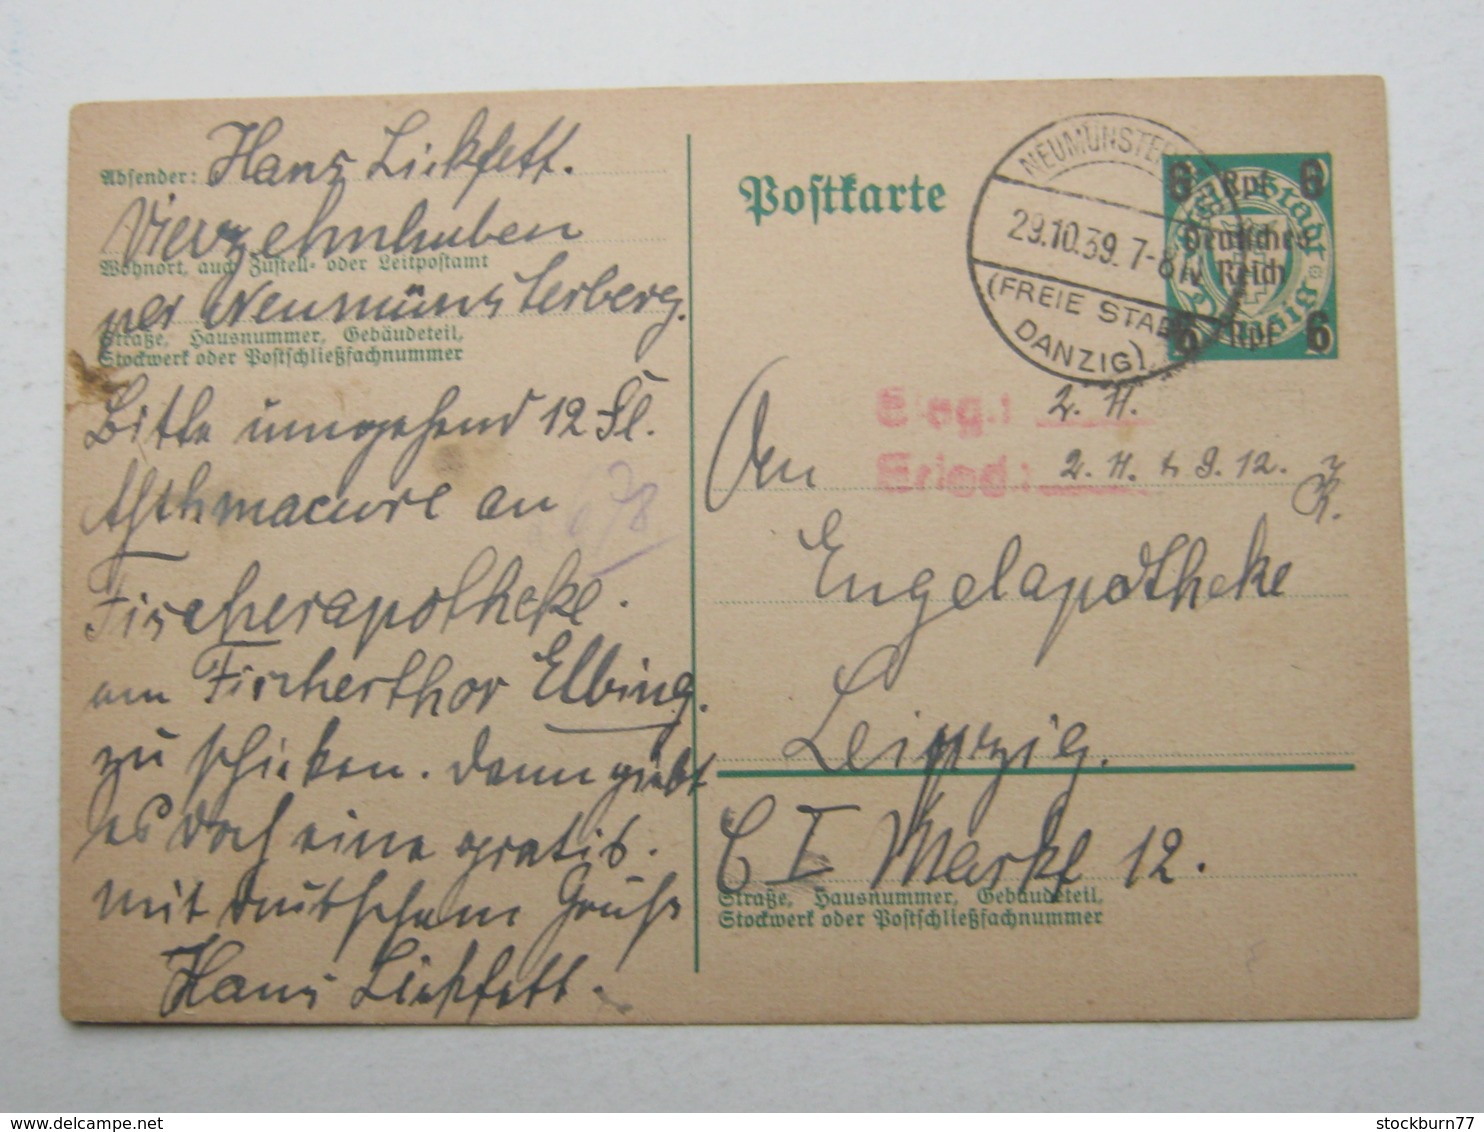 Absender: Hans Lickfett.
Vierzehnhuben
Wohnort, auch Zustell- oder Leitpostamt
per Neumünsterberg.
Straße, Hausnummer, Gebäudeteil,
Stockwerk oder Postschließfachnummer
Bitte umgehend 12 Fl.
Asthmacure an
Fischerapotheke.
am Fischerthor Elbing.
zu schicken. Dann giebt
es doch eine gratis.
mit deutschem Gruß
Hans Lickfett.
678
Postkarte
NEUMÜNSTER
29.10.39. 7-8
(FREIE STADT
DANZIG)
6 Rpf 6
Deutsches
Reich
6 Rpf 6
Eing.: 2. 11.
Erled: 2. 11. + 9. 12.
An
Engelapotheke
Leipzig.
C I Markt 12.
Straße, Hausnummer, Gebäudeteil,
Stockwerk oder Postschließfachnummer
stockburn77